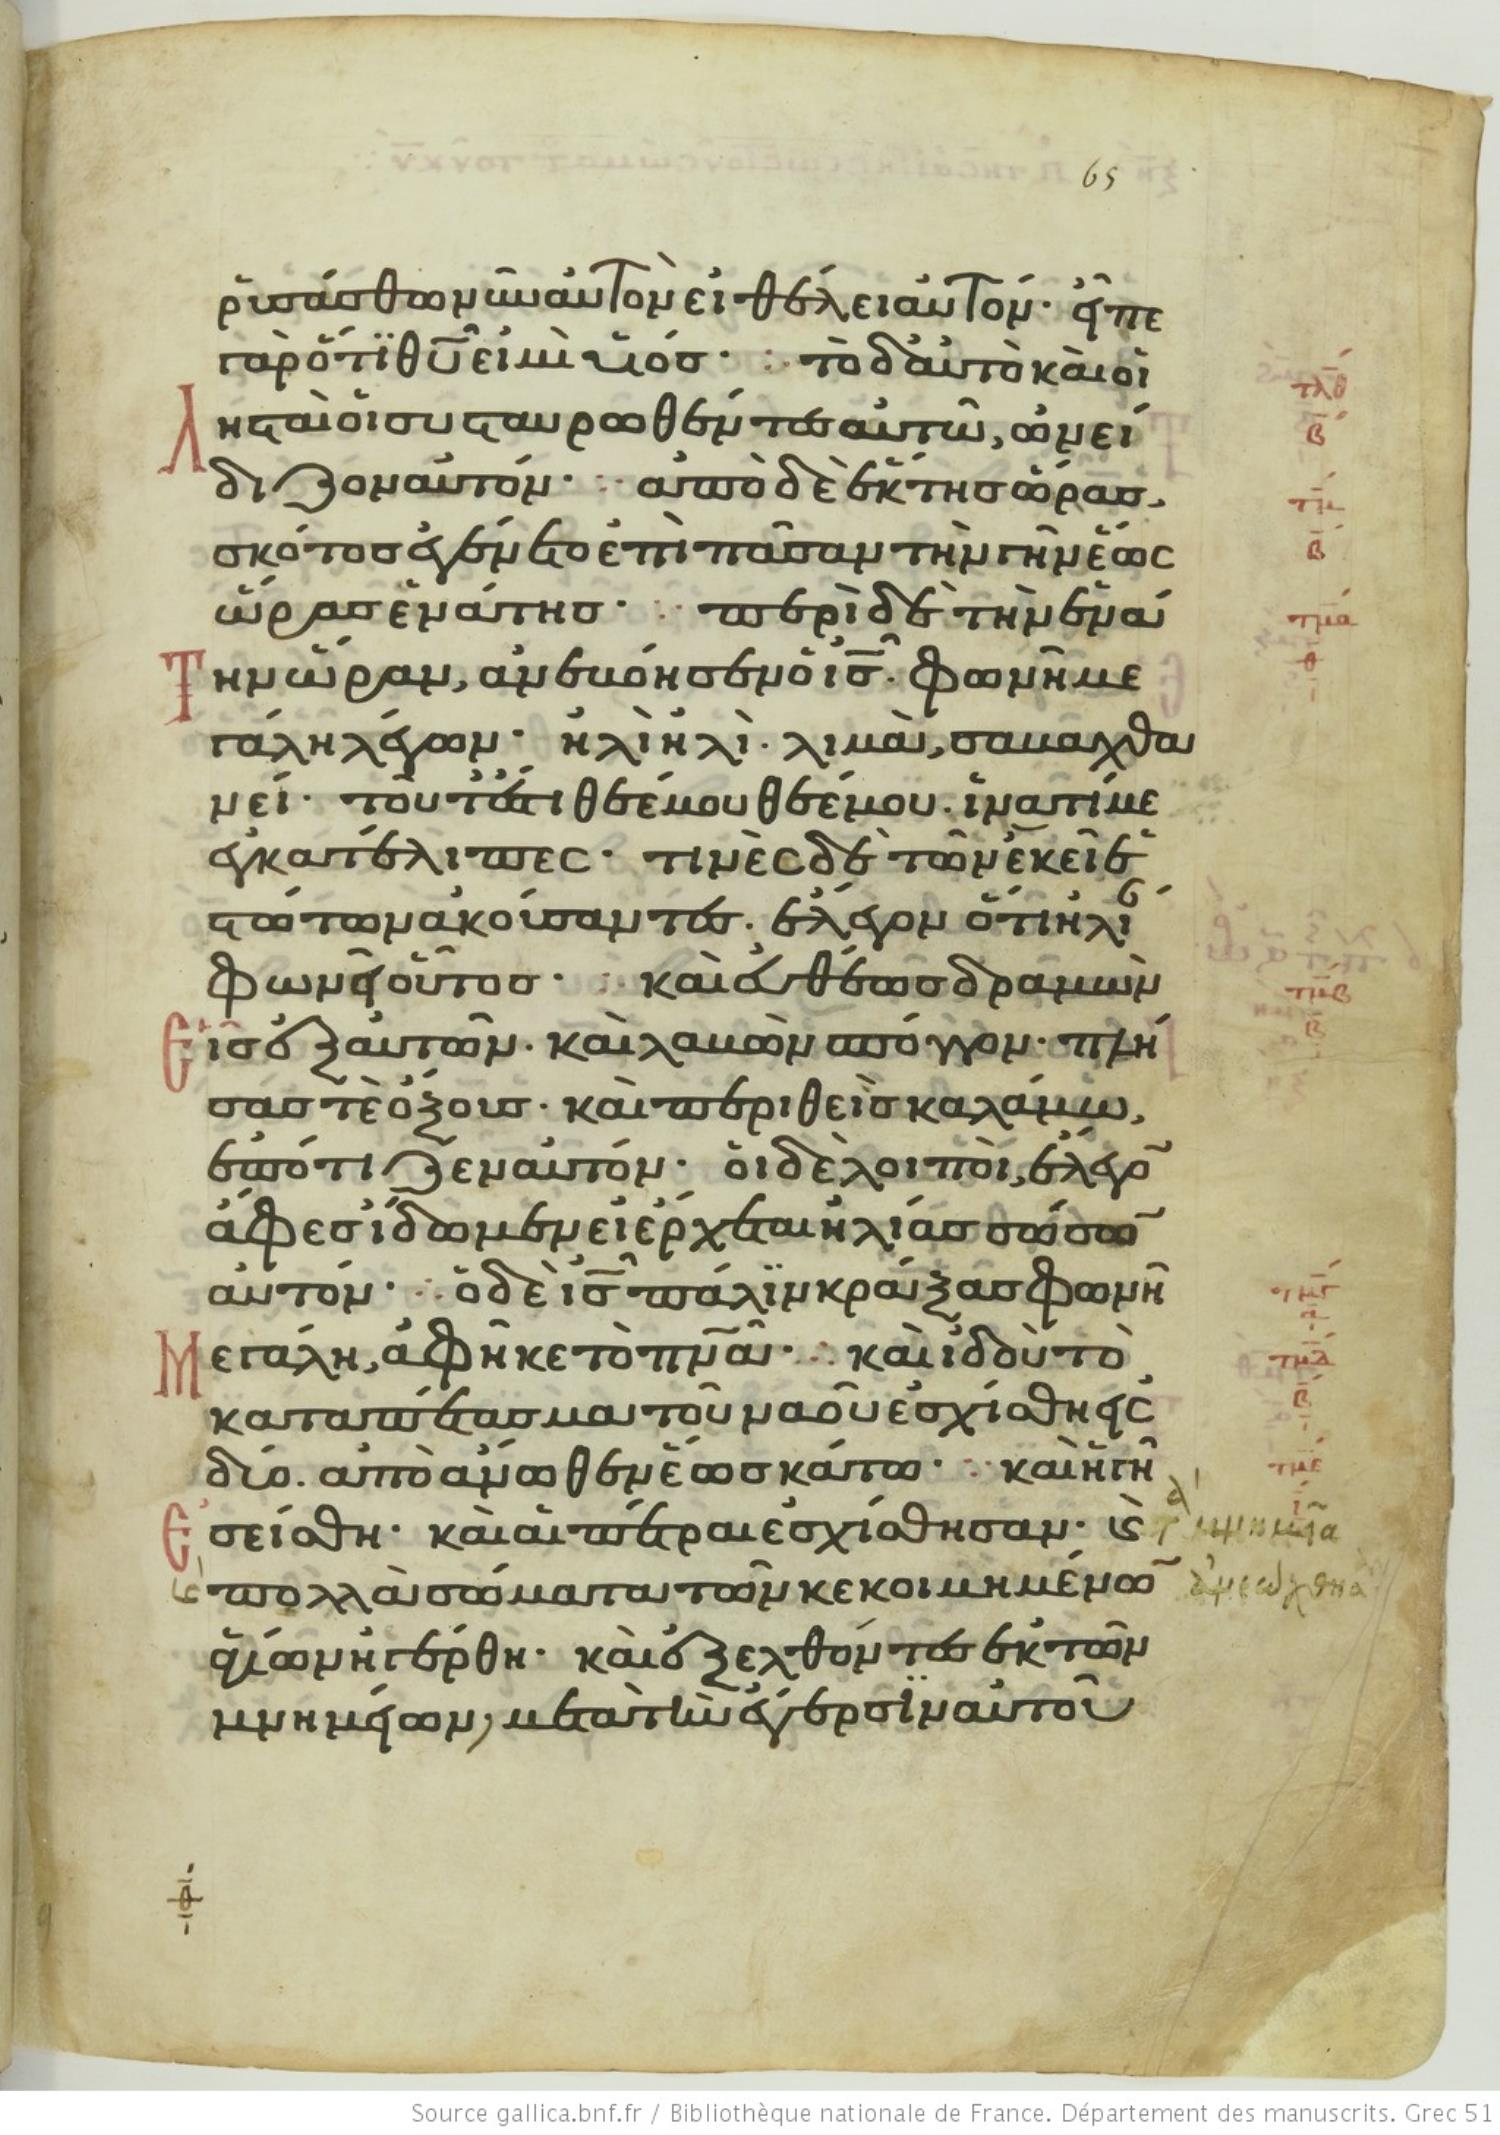 65
ρυσάσθω νῦν αὐτὸν εἰ θέλει αὐτόν· εἶπε
γὰρ ὅτι θῦ εἰμὶ υἱός· τὸ δαυτὸ καὶ οἱ
λησταὶ οἱ συσταυρωθέντες αὐτῶ, ὠνεί
διζον αὐτόν· ἀπὸ δὲ ἕκτης ὥρας,
σκότος ἐγένετο ἐπὶ πᾶσαν τὴν γῆν ἕως
ὥρας ἐνάτης· περὶ δὲ τὴν ἐνά
την ὥραν, ἀνεβόησεν ὁ ις̅· φωνῆ με
γάλη λέγων· ἠλὶ ἠλὶ· λιμὰ, σαβαχθα
νεί· τοῦτ' ἔστι θεέ μου θεέ μου· ἵνατί με
ἐγκατέλιπες· τινὲς δὲ τῶν ἐκεῖ ἑ
στώτων ἀκούσαντες· ἔλεγον ὅτι ἠλί
φωνεῖ οὗτος· καὶ εὐθέως δραμὼν
εἷς ἐξ αὐτῶν· καὶ λαβὼν σπόγγον· πλή
σας τὲ ὄξους· καὶ περιθεὶς καλάμω,
ἐπότιζεν αὐτόν· οἱ δὲ λοιποὶ, ἔλεγο̅
ἄφες ἴδωμεν εἰ ἔρχεται ἠλίας σώσω̅
αὐτόν· ὁ δὲ ις̅ πάλιν κράξας φωνῆ
μεγάλη, ἀφῆκε τὸ πνᾶ· καὶ ἰδοὺ τὸ
καταπέτασμα τοῦ ναοῦ ἐσχίσθη εἰς
δύο· ἀπὸ ἄνωθεν ἕως κάτω· καὶ ἡ γῆ
ἐσείσθη· καὶ αἱ πέτραι ἐσχίσθησαν· ϗ τὰ μνημεῖα
ϗ πολλὰ σώματα τῶν κεκοιμημένω̅ ἀνεώχθησαν
ἁγίων ἠγέρθη· καὶ ἐξελθόντες ἐκ τῶν
μνημείων, μετὰ τὴν ἔγερσιν αὐτοῦ
τλθ
β
τμ
β
τμα
τμβ
β
τμγ
τμδ
β
τμε
ι
Source gallica.bnf.fr / Bibliothèque nationale de France. Département des manuscrits. Grec 51